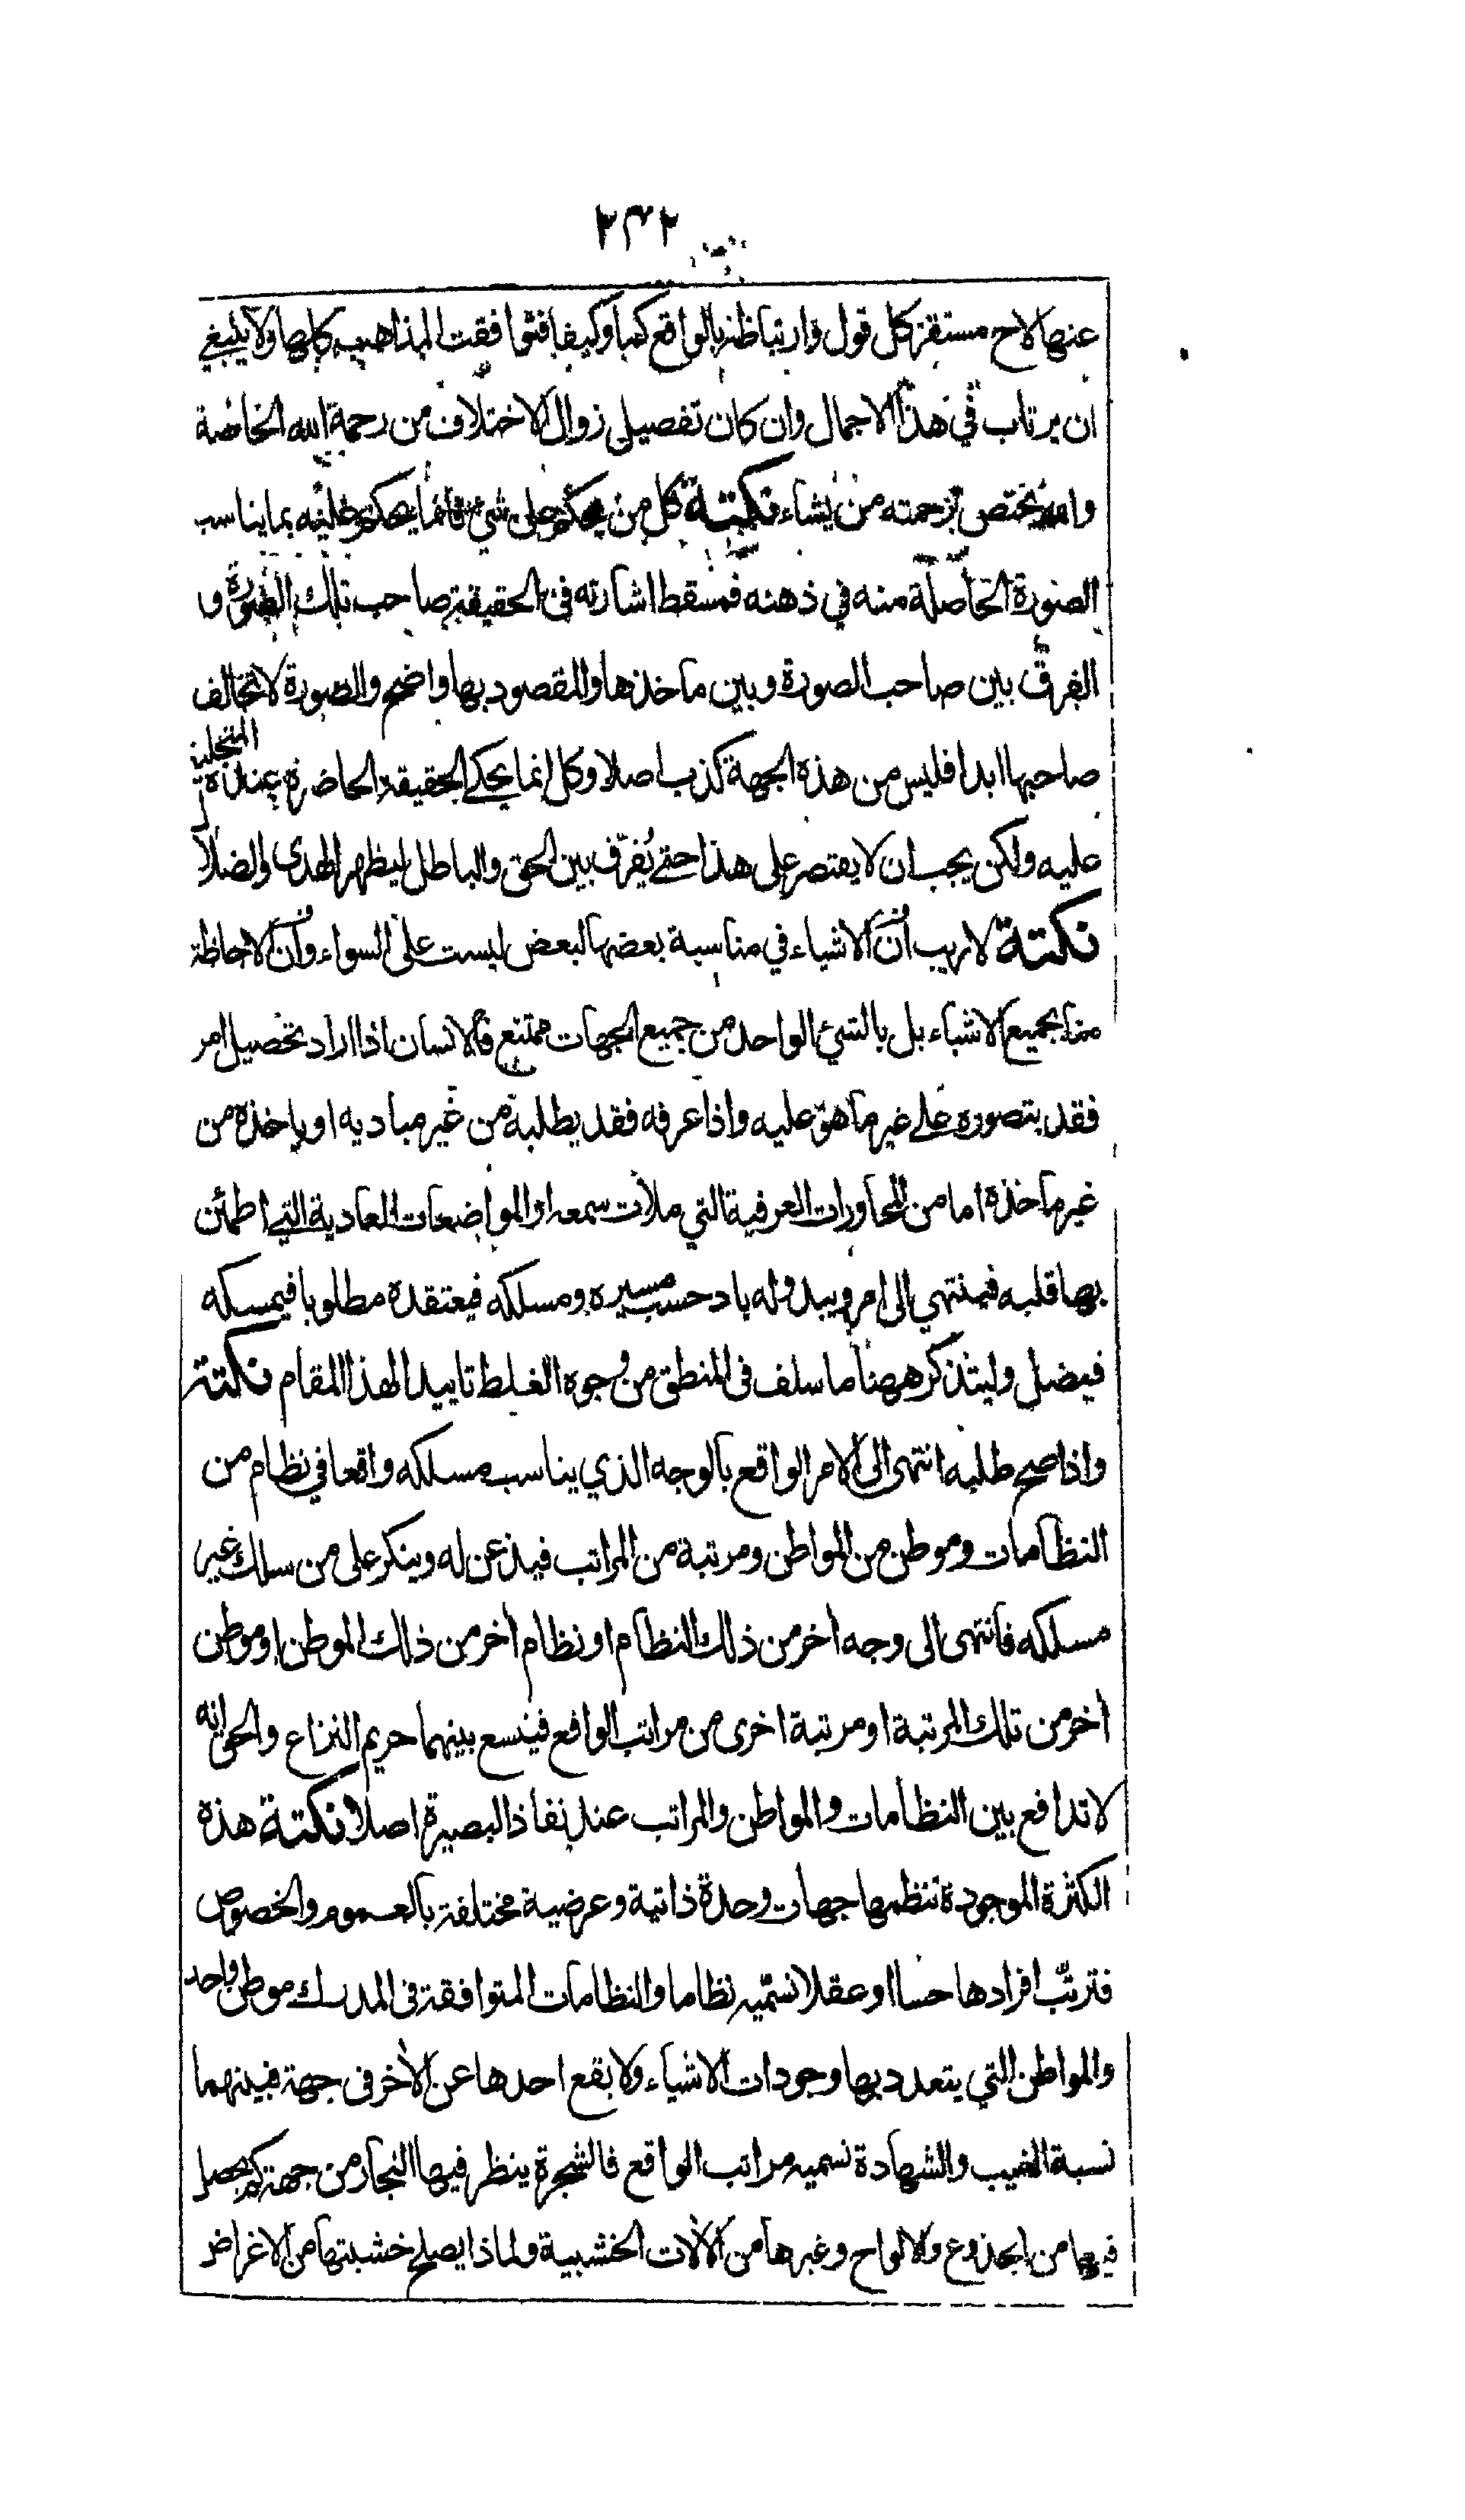 ٢٣٢
عنها لاح مستقر كل قول وارتباطه بالواقع كما وكيفا فتوافقت المذاهب كلها ولا ينبغي
ان يرتاب في هذا الاجمال وان كان تفصيل زوال الاختلاف من رحمة الله الخاصة
والله يختص برحمته من يشاء نكتة كل من يحكم على شئ فانما يحكم عليه بما يناسب
الصورة الحاصلة منه في ذهنه فمسقط اشارته في الحقيقة صاحب تلك الصورة و
الفرق بين صاحب الصورة وبين ماخذها والمقصود بها واضح والصورة لا تخالف
صاحبها ابدا فليس من هذه الجهة كذب اصلا وكل انما يحكي الحقيقة الحاضرة عنده المتجلية
عليه ولكن يجب ان لا يقتصر على هذا حتى يُفرّق بين الحق والباطل ليظهر الهدى والضلال
نكتة لا ريب أنّ الاشياء في مناسبة بعضها لبعض ليست على السواء وأنّ الاحاطة
منا بجميع الاشياء بل بالشئ الواحد من جميع الجهات ممتنع فالانسان اذا اراد تحصيل امر
فقد يتصوره على غير ما هو عليه واذا عرفه فقد يطلبه من غير مباديه او ياخذه من
غير ماخذه اما من المحاورات العرفية التي ملأت سمعه او المواضعات العادية التي اطمئن
بها قلبه فينتهي الى امر ويبدو له باد حسب مسيره ومسلكه فيعتقده مطلوبا فيمسكه
فيضل وليتذكر ههنا ما سلف في المنطق من وجوه الغلط تاييدا لهذا المقام نكتة
واذا صح طلبه انتهى الى الامر الواقع بالوجه الذي يناسب مسلكه واقعا في نظام من
النظامات وموطن من المواطن ومرتبة من المراتب فيذعن له وينكر على من سلك غير
مسلكه فانتهى الى وجه اخر من ذلك النظام او نظام أخر من ذلك الموطن او موطن
اخر من تلك المرتبة او مرتبة اخرى من مراتب الواقع فيتسع بينهما حريم النزاع والحق انه
لا تدافع بين النظامات والمواطن والمراتب عند نفاذ البصيرة اصلا نكتة هذه
الكثرة الموجودة تنتظمها جهات وحدة ذاتية وعرضية مختلفة بالعموم والخصوص
فترتّب افرادها حسا او عقلا نسمّيه نظاما والنظامات المتوافقة في المدرك موطن واحد
والمواطن التي يتعدد بها وجودات الاشياء ولا يقع احدها عن الأخر في جهة فبينهما
نسبة الغيب والشهادة نسميه مراتب الواقع فالشجرة ينظر فيها النجار من جهة كم يحصل
فيها من الجذوع والالواح وغيرها من الألات الخشبية ولماذا يصلح خشبتها من الاغراض